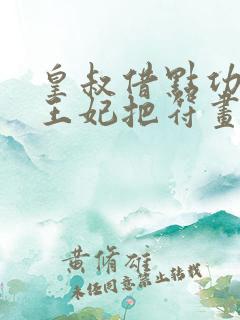 皇叔借點功
王妃把符畫
黄脩雄
未经同意禁止转载